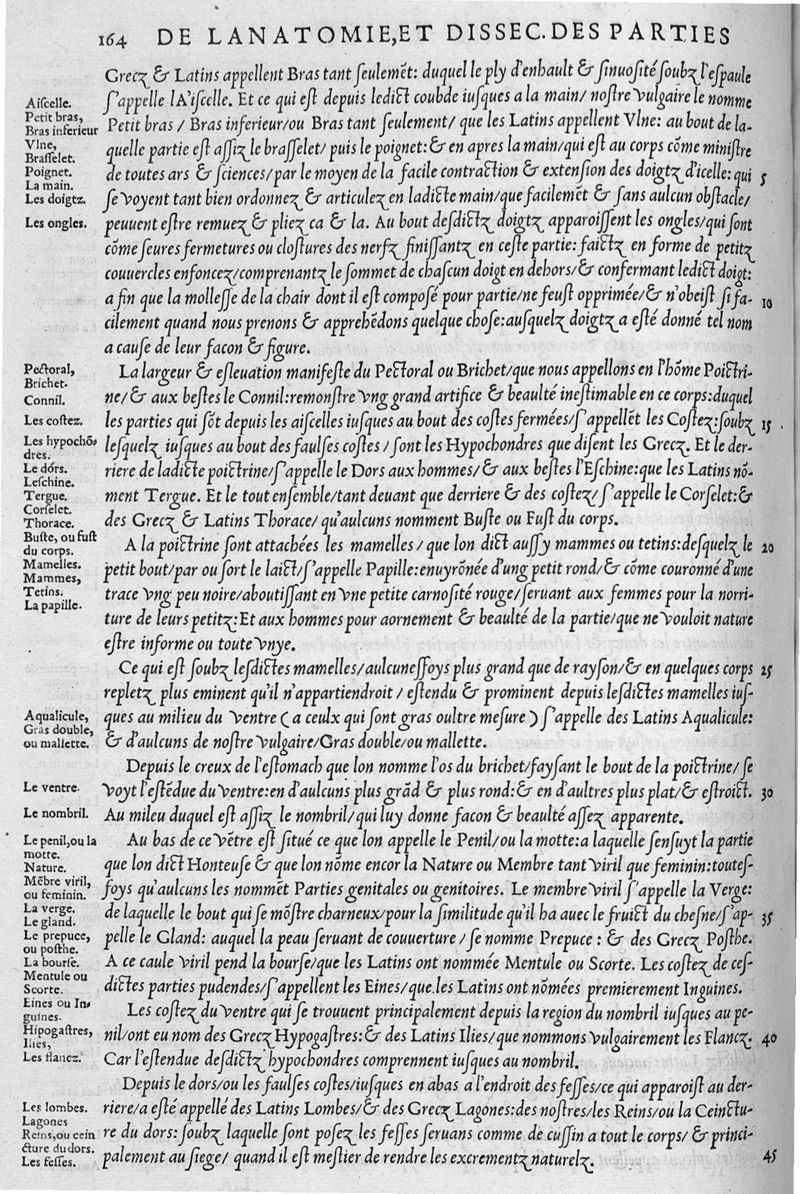 164 DE LANATOMIE, ET DISSEC. DES PARTIES
Grecz & Latins appellent Bras tant seulemẽt: duquel le ply d'enhault & sinuosité soubz l'espaule
s'appelle l'Aiscelle. Et ce qui est depuis ledict coubde iusques a la main/ nostre vulgaire le nomme
Petit bras/ Bras inferieur/ou Bras tant seulement/ que les Latins appellent Vlne: au bout de la-
quelle partie est assiz le brasselet/ puis le poignet: & en apres la main/qui est au corps cõme ministre
de toutes ars & sciences/par le moyen de la facile contraction & extension des doigtz d'icelle: qui 5
se voyent tant bien ordonnez & articulez en ladicte main/que facilemẽt & sans aulcun obstacle/
peuuent estre remuez & pliez ca & la. Au bout desdictz doigtz apparoissent les ongles/qui sont
cõme seures fermetures ou clostures des nerfz finissantz en ceste partie: faictz en forme de petitz
couuercles enfoncez/comprenantz le sommet de chascun doigt en dehors/& confermant ledict doigt:
a fin que la mollesse de la chair dont il est composé pour partie/ne feust opprimée/& n'obeist si fa- 10
cilement quand nous prenons & apprehẽdons quelque chose: ausquelz doigtz a esté donné tel nom
a cause de leur facon & figure.
La largeur & esleuation manifeste du Pectoral ou Brichet/que nous appellons en l'hõme Poictri-
ne/& aux bestes le Connil: remonstre vng grand artifice & beaulté inestimable en ce corps: duquel
les parties qui sõt depuis les aiscelles iusques au bout des costes fermées/s'appellẽt les Costez: soubz 15
lesquelz iusques au bout des faulses costes/ sont les Hypochondres que disent les Grecz. Et le der-
riere de ladicte poictrine/s'appelle le Dors aux hommes/& aux bestes l'Eschine: que les Latins nõ-
ment Tergue. Et le tout ensemble/tant deuant que derriere & des costez/ s'appelle le Corselet: &
des Grecz & Latins Thorace/ qu'aulcuns nomment Buste ou Fust du corps.
A la poictrine sont attachées les mamelles/ que lon dict aussy mammes ou tetins: desquelz le 20
petit bout/par ou sort le laict/s'appelle Papille: enuyrõnée d'ung petit rond/& cõme couronné d'une
trace vng peu noire/aboutissant en vne petite carnosité rouge/seruant aux femmes pour la norri-
ture de leurs petitz: Et aux hommes pour aornement & beaulté de la partie/que ne vouloit nature
estre informe ou toute vnye.
Ce qui est soubz lesdictes mamelles/aulcunessoys plus grand que de rayson/& en quelques corps 25
repletz plus eminent qu'il n'appartiendroit/ estendu & prominent depuis lesdictes mamelles ius-
ques au milieu du ventre (a ceulx qui sont gras oultre mesure) s'appelle des Latins Aqualicule:
& d'aulcuns de nostre vulgaire/Gras double/ou mallette.
Depuis le creux de l'estomach que lon nomme l'os du brichet/faysant le bout de la poictrine/ se
voyt l'estẽdue du ventre: en d'aulcuns plus grãd & plus rond: & en d'aultres plus plat/& estroict. 30
Au mileu duquel est assiz le nombril/qui luy donne facon & beaulté assez apparente.
Au bas de ce vẽtre est situé ce que lon appelle le Penil/ou la motte: a laquelle sensuyt la partie
que lon dict Honteuse & que lon nõme encor la Nature ou Membre tant viril que feminin: toutes-
foys qu'aulcuns les nommẽt Parties genitales ou genitoires. Le membre viril s'appelle la Verge:
de laquelle le bout qui se mõstre charneux/pour la similitude qu'il ha auec le fruict du chesne/s'ap- 35
pelle le Gland: auquel la peau seruant de couuerture/ se nomme Prepuce: & des Grecz Posthe.
A ce caule viril pend la bourse/que les Latins ont nommée Mentule ou Scorte. Les costez de ces-
dictes parties pudendes/s'appellent les Eines/que les Latins ont nõmées premierement Inguines.
Les costez du ventre qui se trouuent principalement depuis la region du nombril iusques au pe-
nil/ont eu nom des Grecz Hypogastres: & des Latins Ilies/que nommons vulgairement les Flancz. 40
Car l'estendue desdictz hypochondres comprennent iusques au nombril.
Depuis le dors/ou les faulses costes/iusques en abas a l'endroit des fesses/ce qui apparoist au der-
riere/a esté appellé des Latins Lombes/& des Grecz Lagones: des nostres/les Reins/ou la Ceinctu-
re du dors: soubz laquelle sont posez les fesses seruans comme de cussin a tout le corps/ & princi-
palement au siege/ quand il est mestier de rendre les excrementz naturelz. 45
Aiscelle.
Petit bras,
Bras inferieur
Vlne,
Brasselet.
Poignet.
La main.
Les doigtz.
Les ongles.
Pectoral,
Brichet.
Connil.
Les costez.
Les hypochõ
dres.
Le dors.
Leschine.
Tergue.
Corselet.
Thorace.
Buste, ou fust
du corps.
Mamelles.
Mammes,
Tetins.
La papille.
Aqualicule,
Gras double,
ou mallette.
Le ventre.
Le nombril.
Le penil, ou la
motte.
Nature.
Mẽbre viril,
ou feminin.
La verge.
Le gland.
Le prepuce,
ou posthe.
La bourse.
Mentule ou
Scorte.
Eines ou In-
guines.
Hipogastres,
Ilies,
Les flancz.
Les lombes.
Lagones
Reins, ou cein
cture du dors.
Les fesses.